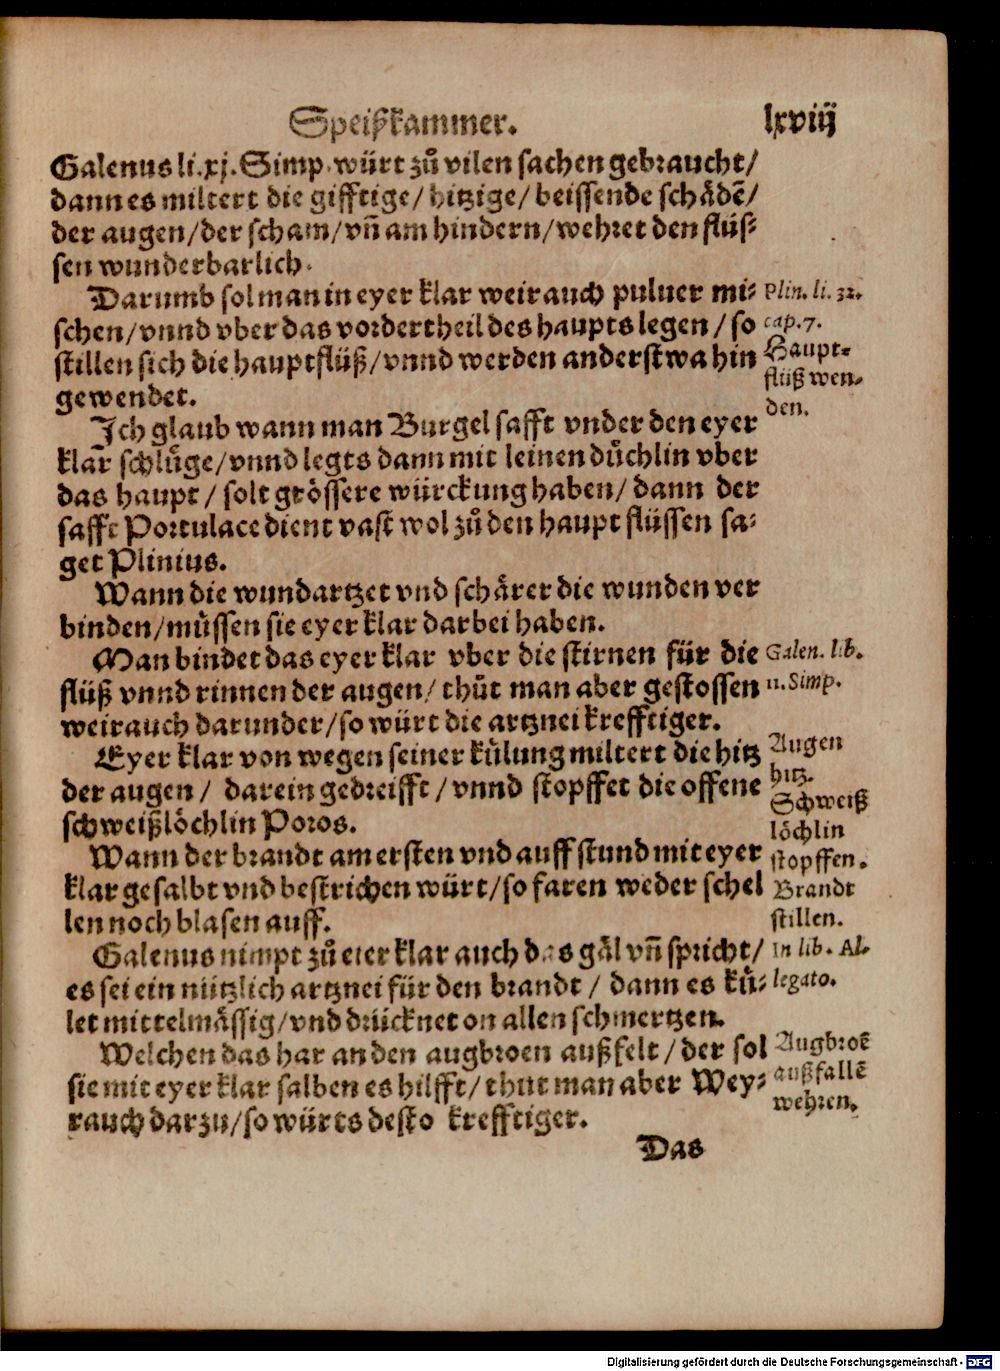 Speißkammer. lxviij
Galenus li.xj. Simp. würt zů vilen sachen gebraucht/
dann es miltert die gifftige/ hitzige/ beissende schådẽ/
der augen/der scham/vñ am hindern/wehret den flüs⸗
sen wunderbarlich.
Darumb sol man in eyer klar weirauch puluer mi⸗
schen/vnnd vber das vordertheil des haupts legen/ so
stillen sich die hauptflüß/vnnd werden anderstwa hin
gewendet.
Plin. li. 32.
cap. 7.
Haupt⸗
flüß wen⸗
den.
Ich glaub wann man Burgel safft vnder den eyer
klar schlůge/vnnd legts dann mit leinen důchlin vber
das haupt/ solt grössere würckung haben/ dann der
safft Portulace dient vast wol zů den haupt flüssen sa⸗
get Plinius.
Wann die wundartzet vnd schärer die wunden ver
binden/můssen sie eyer klar darbei haben.
Man bindet das eyer klar vber die stirnen für die
flüß vnnd rinnen der augen/ thůt man aber gestossen
weirauch darunder/so würt die artznei krefftiger.
Galen. lib.
11. Simp.
Eyer klar von wegen seiner kůlung miltert die hitz
der augen/ darein gedreifft/vnnd stopffet die offene
schweißlöchlin Poros.
Augen
hitz.
Schweiß
löchlin
stopffen.
Wann der brandt am ersten vnd auff stund mit eyer
klar gesalbt vnd bestrichen würt/so faren weder schel
len noch blasen auff.
Brandt
stillen.
Galenus nimpt zů eier klar auch das gäl vñ spricht/
es sei ein nützlich artznei für den brandt/ dann es ků⸗
let mittelmåssig/vnd drücknet on allen schmertzen.
In lib. Al⸗
legato.
Welchen das har an den augbroen außfelt/der sol
sie mit eyer klar salben es hilfft/ thut man aber Wey⸗
rauch darzu/so würts desto krefftiger.
Augbroẽ
außfallẽ
wehren.
Das
Digitalisierung gefördert durch die Deutsche Forschungsgemeinschaft - DFG